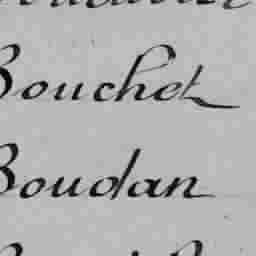 Bouchet
Boudan